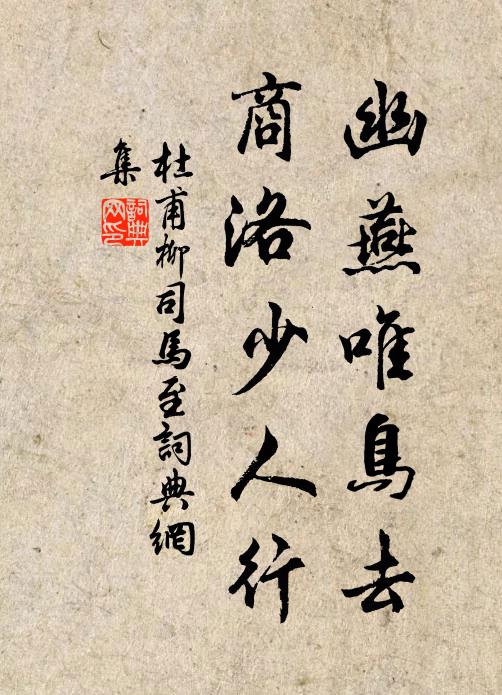 幽燕唯鳥去
商洛少人行
杜甫柳司馬至詞典網
集
詞典
网印